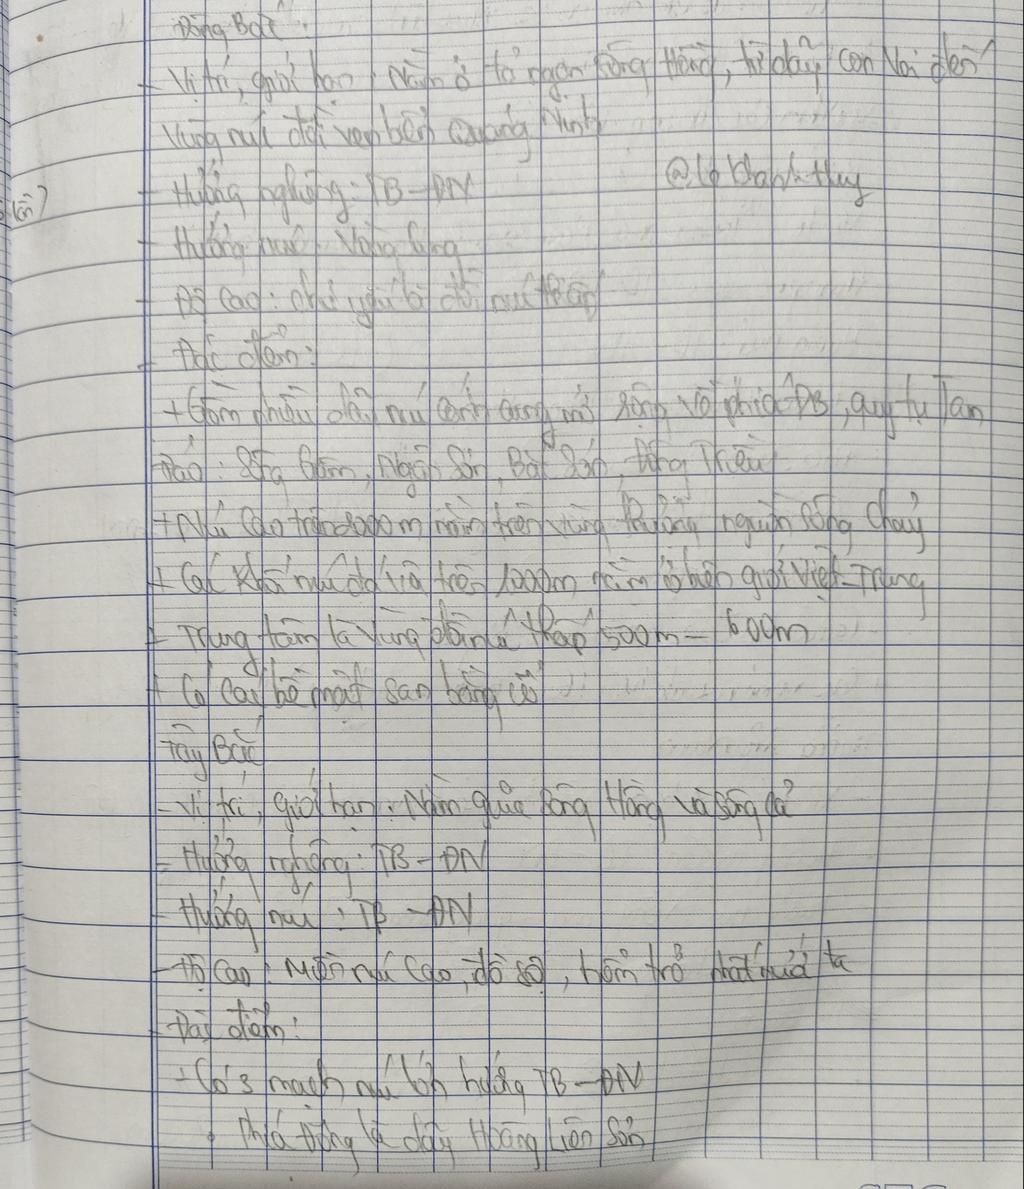 Đông Bắc:
- Vị trí, giới hạn: Nằm ở tả ngạn sông Hồng, từ dãy con Voi đến
vùng núi đồi ven biển Quảng Ninh
- Hướng nghiêng: TB-ĐN
- Hướng núi: Vòng cung
- Độ cao: chủ yếu là đồi núi thấp
- Đặc điểm:
+ Gồm nhiều dãy núi cánh cung mở rộng về phía ĐB, quy tụ Tam
Đảo: Sông Gâm, Ngân Sơn, Bắc Sơn, Đông Triều
+ Núi cao trên 2000m nằm trên vùng thượng nguồn sông Chảy
+ Các khối núi đá vôi trên 1000m nằm ở biên giới Việt-Trung
+ Trung tâm là vùng đồi núi thấp 500m - 600m
+ Có các bề mặt san bằng cổ
Tây Bắc
- Vị trí, giới hạn: Nằm giữa sông Hồng và sông Cả
- Hướng nghiêng: TB-ĐN
- Hướng núi: TB-ĐN
- Độ cao: Miền núi cao, đồ sộ, hiểm trở nhất nước ta
- Đặc điểm:
+ Có 3 mạch núi lớn hướng TB-ĐN
• Phía Đông là dãy Hoàng Liên Sơn